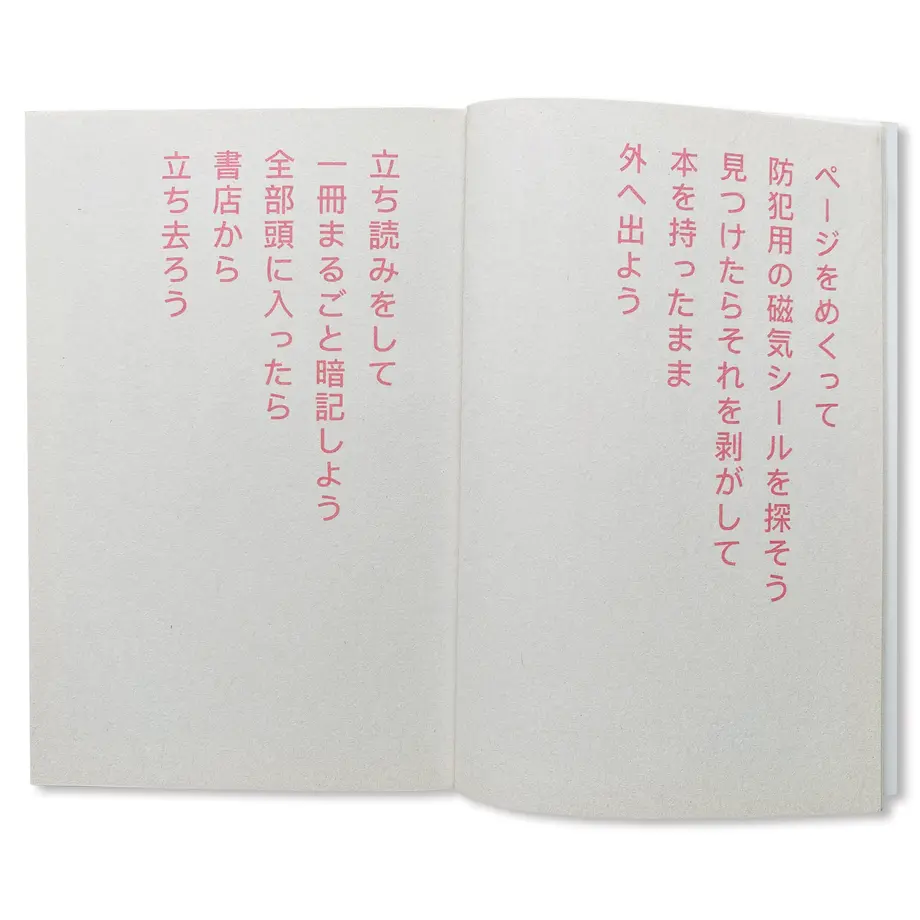 ページをめくって
防犯用の磁気シールを探そう
見つけたらそれを剥がして
本を持ったまま
外へ出よう
立ち読みをして
一冊まるごと暗記しよう
全部頭に入ったら
書店から
立ち去ろう